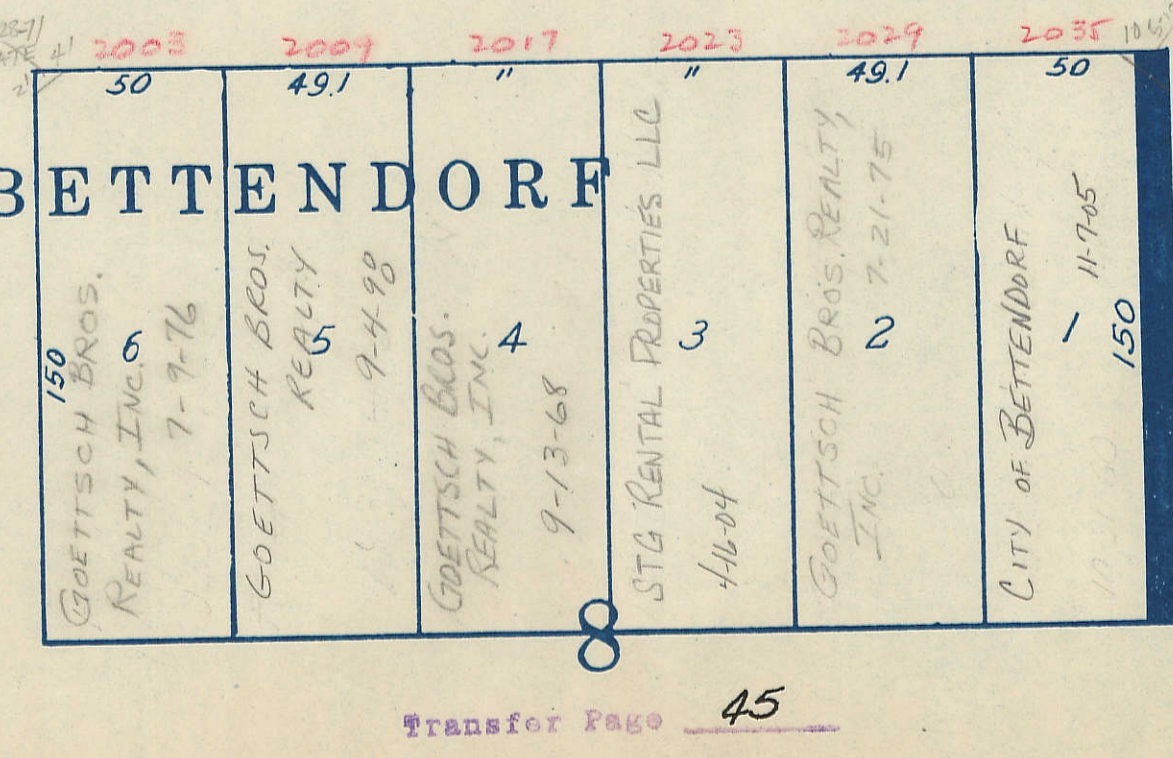 2003 2009 2017 2023 2029 2035
50 49.1 " " 49.1 50
BETTENDORF
150
6
GOETTSCH BROS.
REALTY, INC.
7-9-76
5
GOETTSCH BROS.
REALTY
9-4-90
4
GOETTSCH BROS.
REALTY, INC.
9-13-68
3
STG RENTAL PROPERTIES LLC
4-16-04
2
GOETTSCH BROS. REALTY,
INC.
7-21-75
1
CITY OF BETTENDORF
11-7-05
150
8
Transfer Page 45